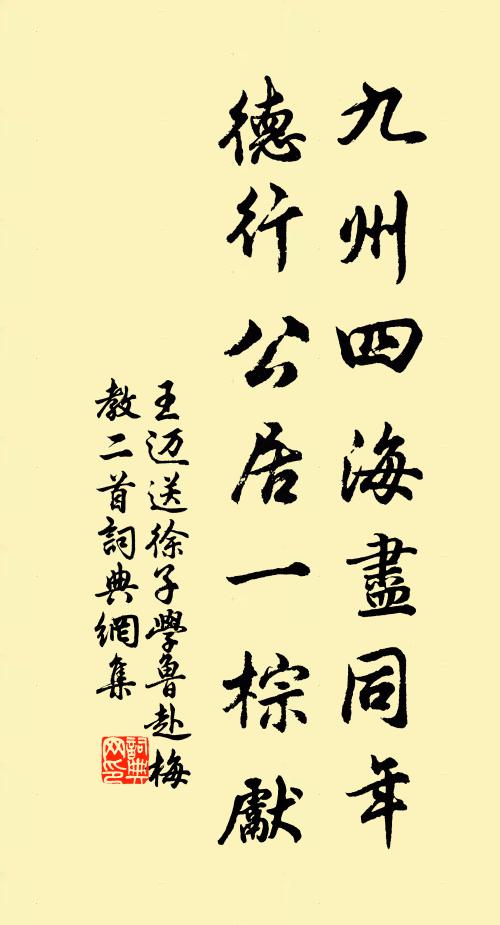 九州四海盡同年
德行公居一棕獻
王迈送徐子學魯赴梅
教二首詞典網集
詞典網印